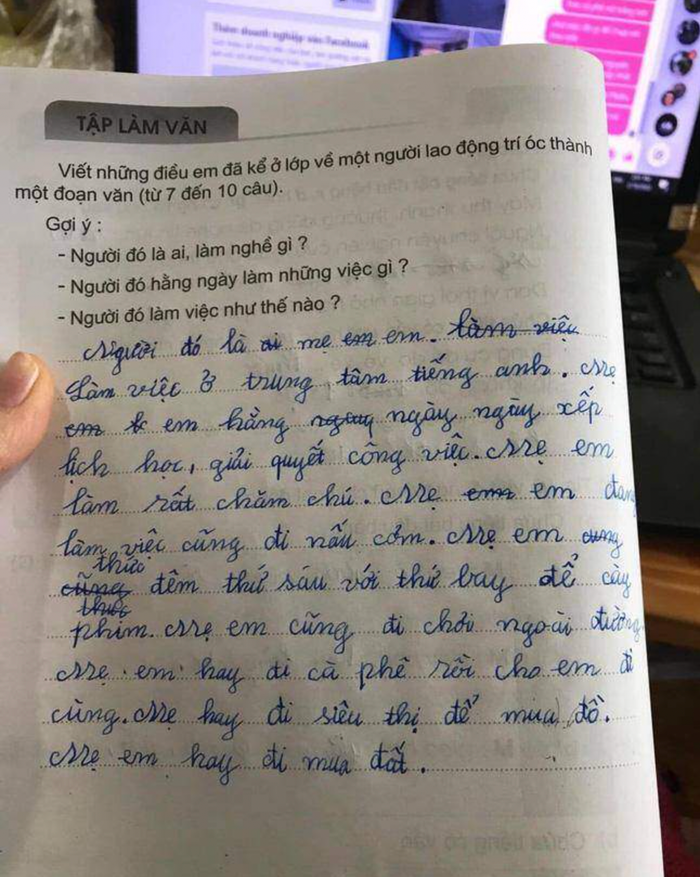 Thêm doanh nghiệp vào Facebook
TẬP LÀM VĂN
Viết những điều em đã kể ở lớp về một người lao động trí óc thành
một đoạn văn (từ 7 đến 10 câu).
Gợi ý :
- Người đó là ai, làm nghề gì ?
- Người đó hằng ngày làm những việc gì ?
- Người đó làm việc như thế nào ?
Người đó là ai mẹ em em. làm việc
Làm việc ở trung tâm tiếng anh. Mẹ
em em hằng ngày ngày ngày xếp
lịch học, giải quyết công việc. Mẹ em
làm rất chăm chú. Mẹ em em đang
làm việc cũng đi nấu cơm. Mẹ em cung
thức
cũng đêm thứ sáu với thứ bảy để cày
thức
phim. Mẹ em cũng đi chơi ngoài đường
Mẹ em hay đi cà phê rồi cho em đi
cùng. Mẹ hay đi siêu thị để mua đồ.
Mẹ em hay đi mua đất.